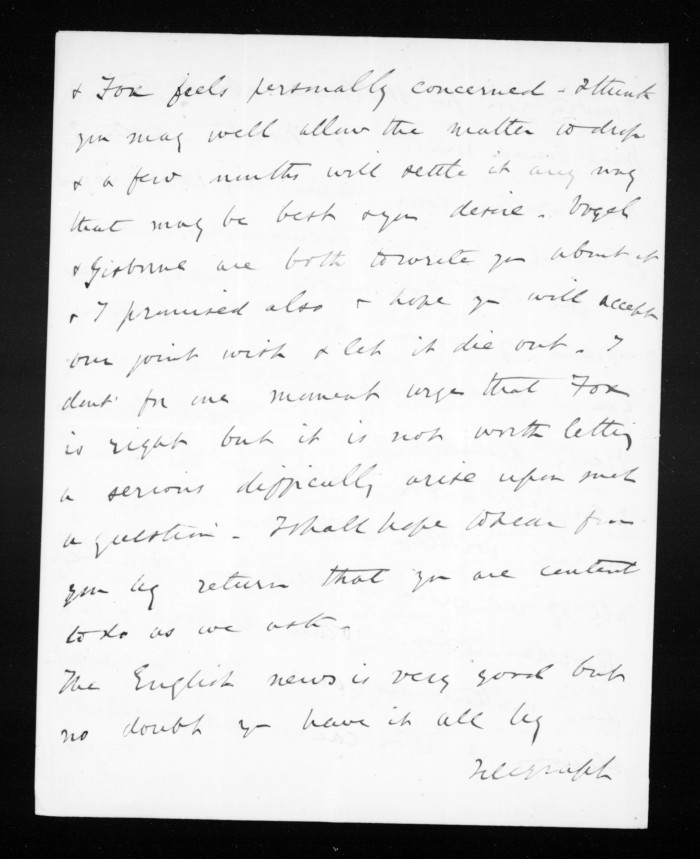 & Fox feels personally concerned - I think
you may well allow the matter to drop
& a few months will settle it any way
that may be best & you desire. Vogel
& Gisborne are both to write you about it
& I promised also & hope you will accept
our joint wish & let it die out. I
dont for one moment urge that Fox
is right but it is not worth letting
a serious difficulty arise upon such
a question - I shall hope to hear from
you by return that you are content
to do as we ask -
The English news is very good but
no doubt you have it all by
Telegraph